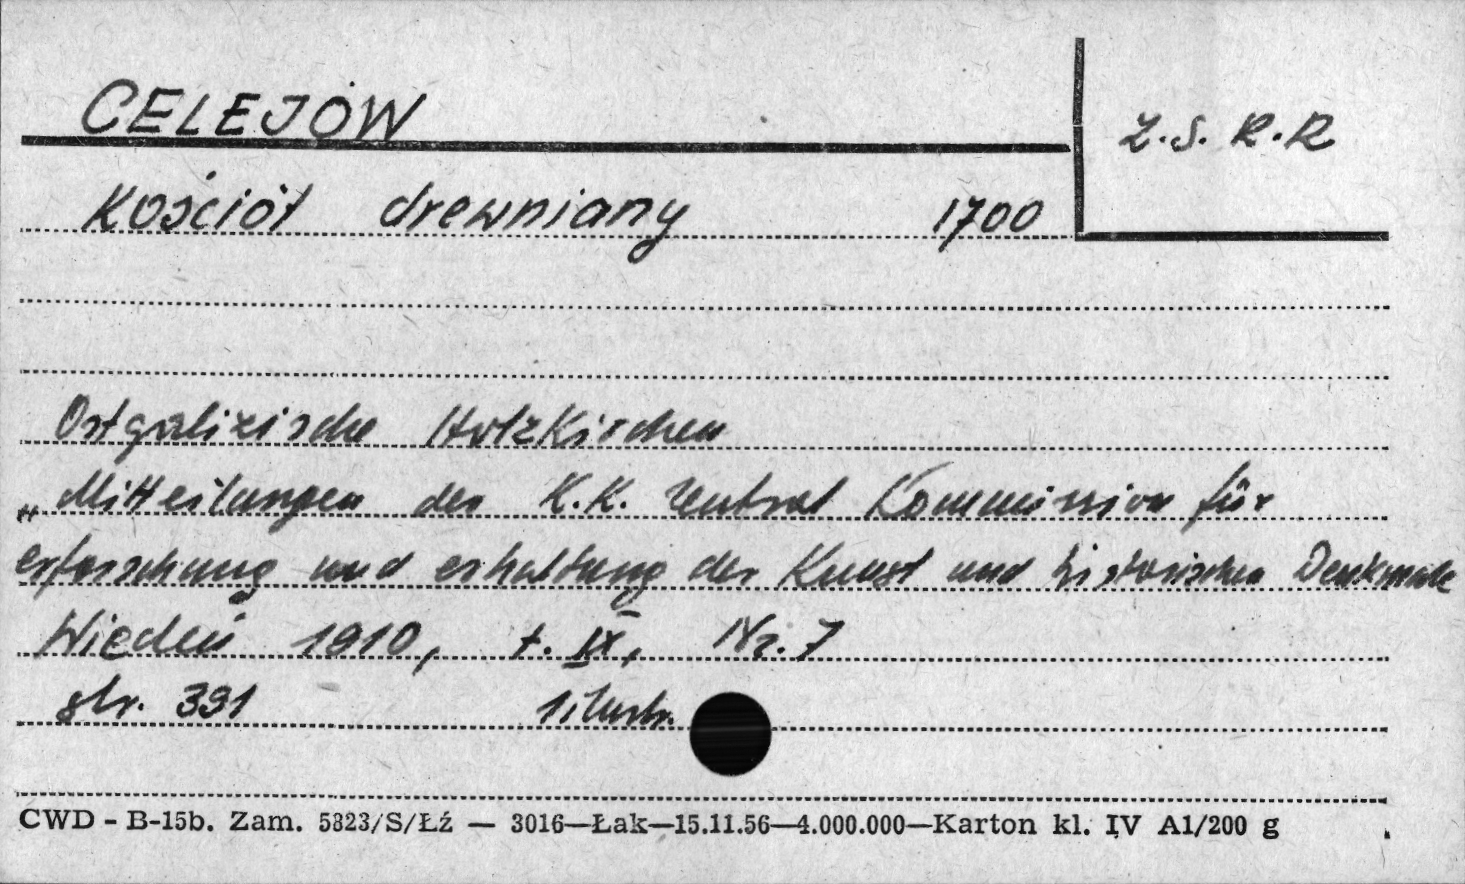 CELEJÓW
Z.S.R.R
Kościół drewniany 1700
Ostgalizische Holzkirchen
„Mitteilungen der K.K. Zentral Kommission für
erforschung und erhaltung der Kunst und historischen Denkmale
Wiedeń 1910, t. IX, Nr. 7
str. 391 1 ilustr.
CWD - B-15b. Zam. 5823/S/Łź — 3016—Łak—15.11.56—4.000.000—Karton kl. IV A1/200 g